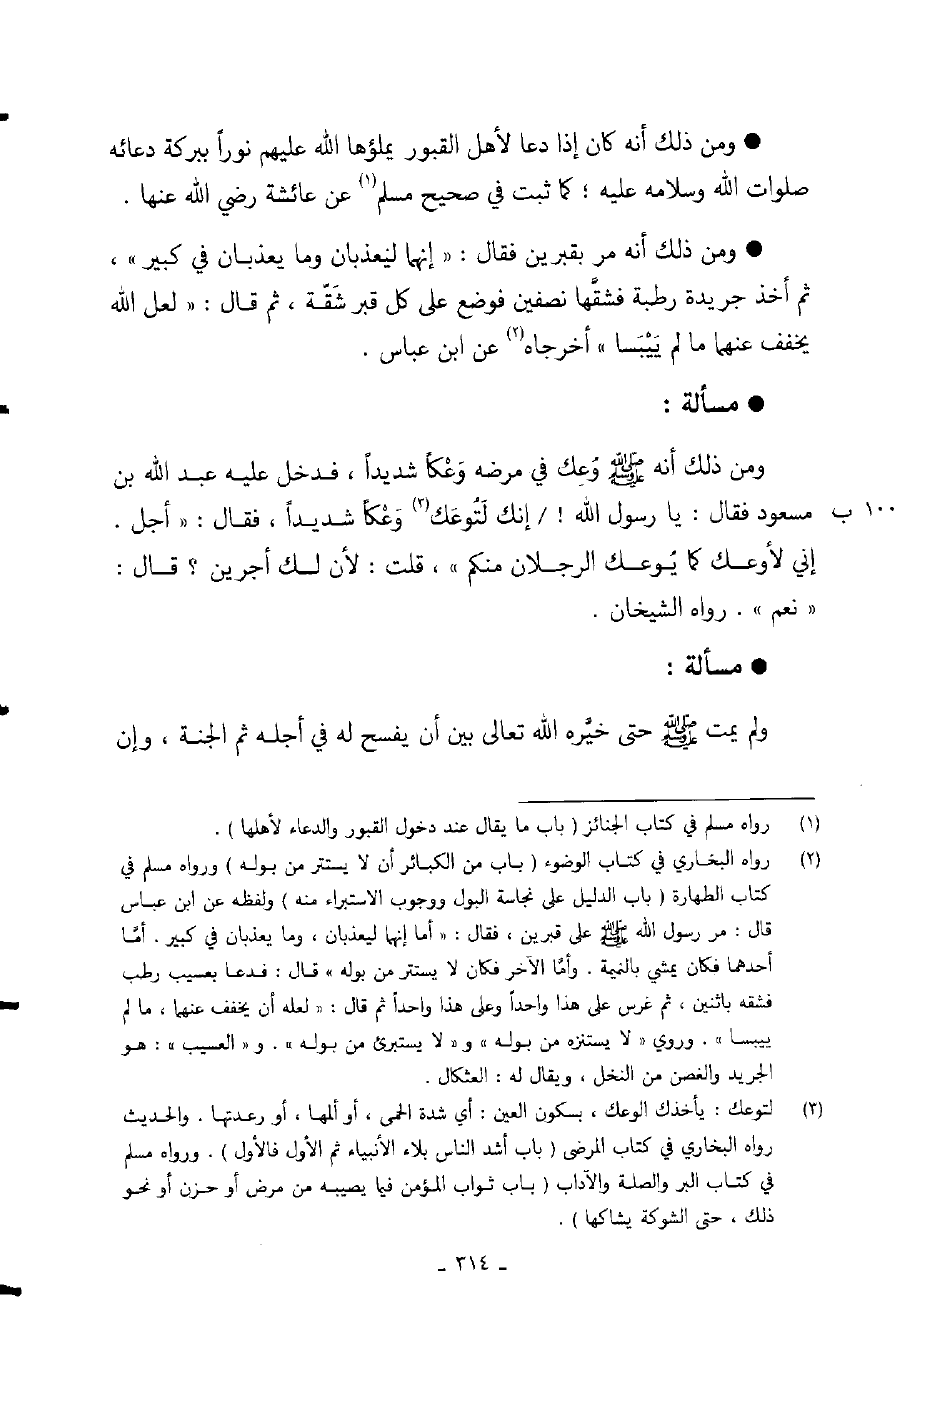 ● ومن ذلك أنه كان إذا دعا لأهل القبور يملؤها الله عليهم نوراً ببركة دعائه
صلوات الله وسلامه عليه ؛ كما ثبت في صحيح مسلم(١) عن عائشة رضي الله عنها .
● ومن ذلك أنه مر بقبرين فقال : « إنهما ليَعذبان وما يعذبـان في كبير » ،
ثم أخذ جريدة رطبة فشقَّها نصفين فوضع على كل قبر شَقّـة ، ثم قـال : « لعل الله
يخفف عنهما ما لم يَيْبَسا » أخرجاه(٢) عن ابن عباس .
● مسألة :
ومن ذلك أنه ﷺ وُعِك في مرضه وَعْكاً شديداً ، فـدخل عليـه عبـد الله بن
١٠٠ ب مسعود فقال : يا رسول الله ! / إنك لَتُوعَك(٣) وَعْكاً شـديـداً ، فقـال : « أجل .
إني لأوعـك كما يُوعـك الرجـلان منكم » ، قلت : لأن لـك أجرين ؟ قـال :
« نعم » . رواه الشيخان .
● مسألة :
ولم يمت ﷺ حتى خيَّره الله تعالى بين أن يفسح له في أجلـه ثم الجنـة ، وإن
(١) رواه مسلم في كتاب الجنائز ( باب ما يقال عند دخول القبور والدعاء لأهلها ) .
(٢) رواه البخـاري في كتـاب الوضوء ( بـاب من الكبـائر أن لا يستتر من بولـه ) ورواه مسلم في
كتاب الطهارة ( باب الدليل على نجاسة البول ووجوب الاستبراء منه ) ولفظه عن ابن عبـاس
قال : مر رسول الله ﷺ على قبرين ، فقال : « أما إنهما ليعذبان ، وما يعذبان في كبير . أمّا
أحدهما فكان يمشي بالنميمة . وأمّا الآخر فكان لا يستتر من بوله » قـال : فـدعـا بعسيب رطب
فشقه باثنين ، ثم غرس على هذا واحداً وعلى هذا واحداً ثم قال : « لعله أن يخفف عنهما ، ما لم
ييبسـا » . وروي « لا يستنزه من بولـه » و« لا يستبرئ من بولـه » . و« العسيب » : هـو
الجريد والغصن من النخل ، ويقال له : العثكال .
(٣) لتوعك : يـأخذك الوعـك ، بـسكون العين : أي شدة الحمى ، أو ألمهـا ، أو رعـدتهـا . والحـديث
رواه البخاري في كتاب المرضى ( باب أشد الناس بلاء الأنبياء ثم الأول فالأول ) . ورواه مسلم
في كتـاب البر والصلـة والآداب ( بـاب ثـواب المؤمن فيما يصيبـه من مرض أو حـزن أو نحـو
ذلك ، حتى الشوكة يشاكها ) .
ـ ٣١٤ ـ